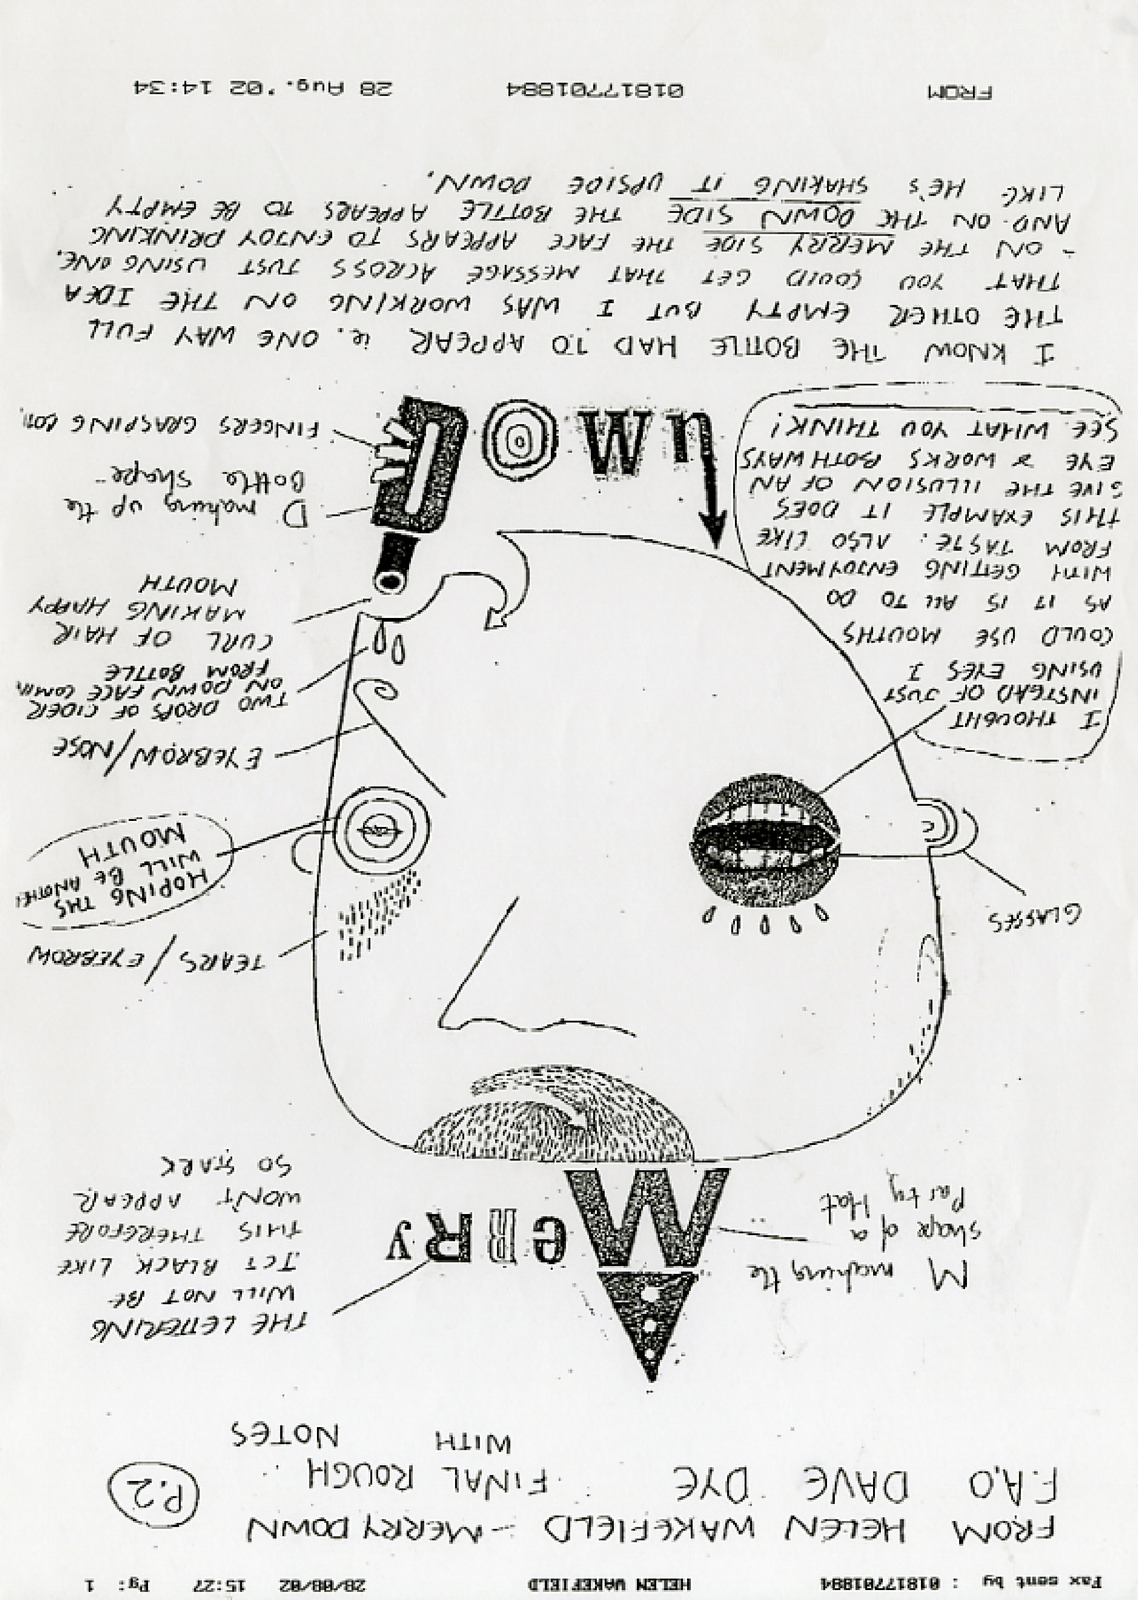 Fax sent by : 01817701884 HELEN WAKEFIELD 28/08/02 15:27 Pg: 1
FROM HELEN WAKEFIELD - MERRYDOWN
F.A.O DAVE DYE FINAL ROUGH
WITH NOTES
P.2
M making the
shape of a
Party Hat
MeRRy
THE LETTERING
WILL NOT BE
JET BLACK LIKE
THIS THEREFORE
WON'T APPEAR
SO STARK
GLASSES
TEARS / EYEBROW
HOPING THIS
WILL BE ANOTHER
MOUTH
I THOUGHT
INSTEAD OF JUST
USING EYES I
COULD USE MOUTHS
AS IT IS ALL TO DO
WITH GETTING ENJOYMENT
FROM TASTE. ALSO LIKE
THIS EXAMPLE IT DOES
GIVE THE ILLUSION OF AN
EYE & WORKS BOTH WAYS
SEE WHAT YOU THINK!
EYEBROW/NOSE
TWO DROPS OF CIDER
ON DOWN FACE COMIN
FROM BOTTLE
CURL OF HAIR
MAKING HAPPY
MOUTH
D making up the
Bottle shape-
FINGERS GRASPING
DOWn
I KNOW THE BOTTLE HAD TO APPEAR ie. ONE WAY FULL
THE OTHER EMPTY BUT I WAS WORKING ON THE IDEA
THAT YOU COULD GET THAT MESSAGE ACROSS JUST USING ONE.
- ON THE MERRY SIDE THE FACE APPEARS TO ENJOY DRINKING
AND ON THE DOWN SIDE THE BOTTLE APPEARS TO BE EMPTY
LIKE HE'S SHAKING IT UPSIDE DOWN.
FROM 01817701884 28 Aug. '02 14:34